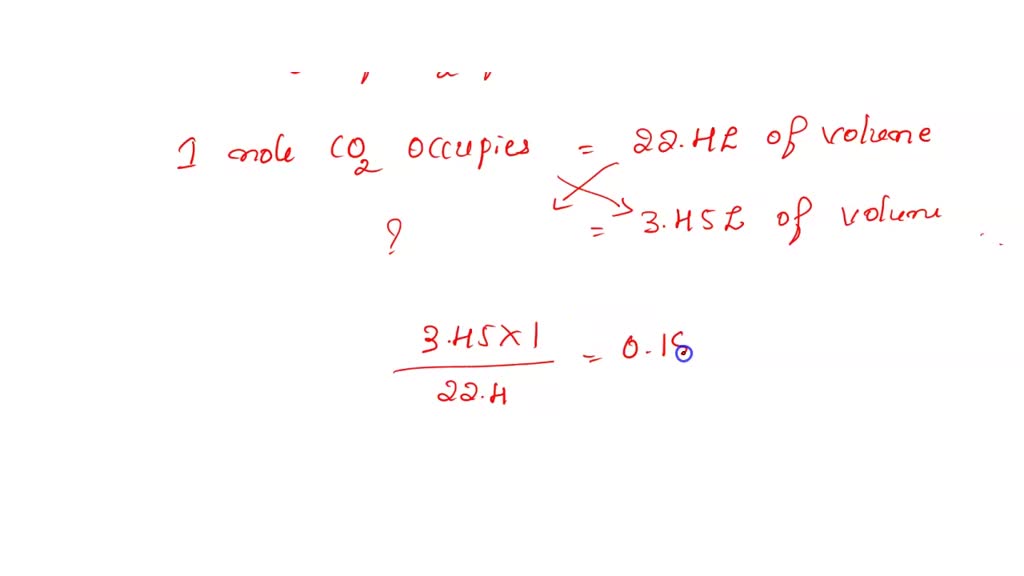 1 mole CO2 occupies = 22.4L of volume
? = 3.45L of volume
3.45 x 1
= 0.15
22.4